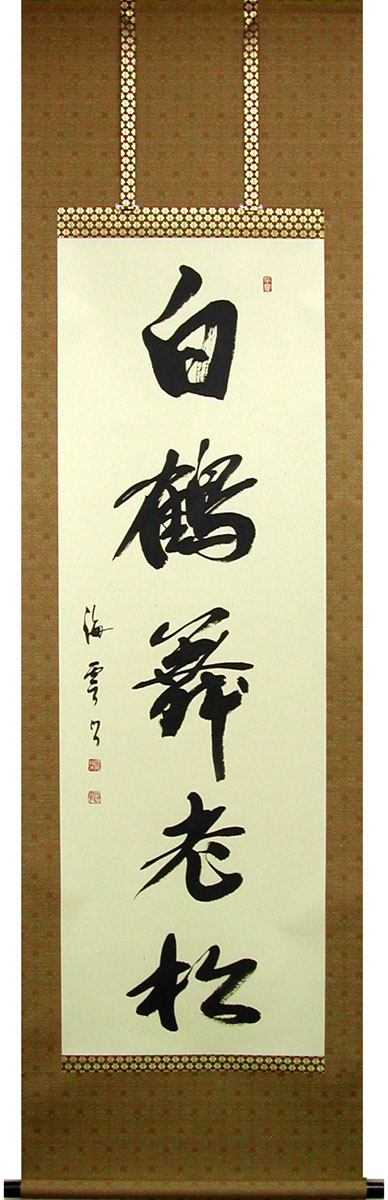 白鶴舞老松
海雲書